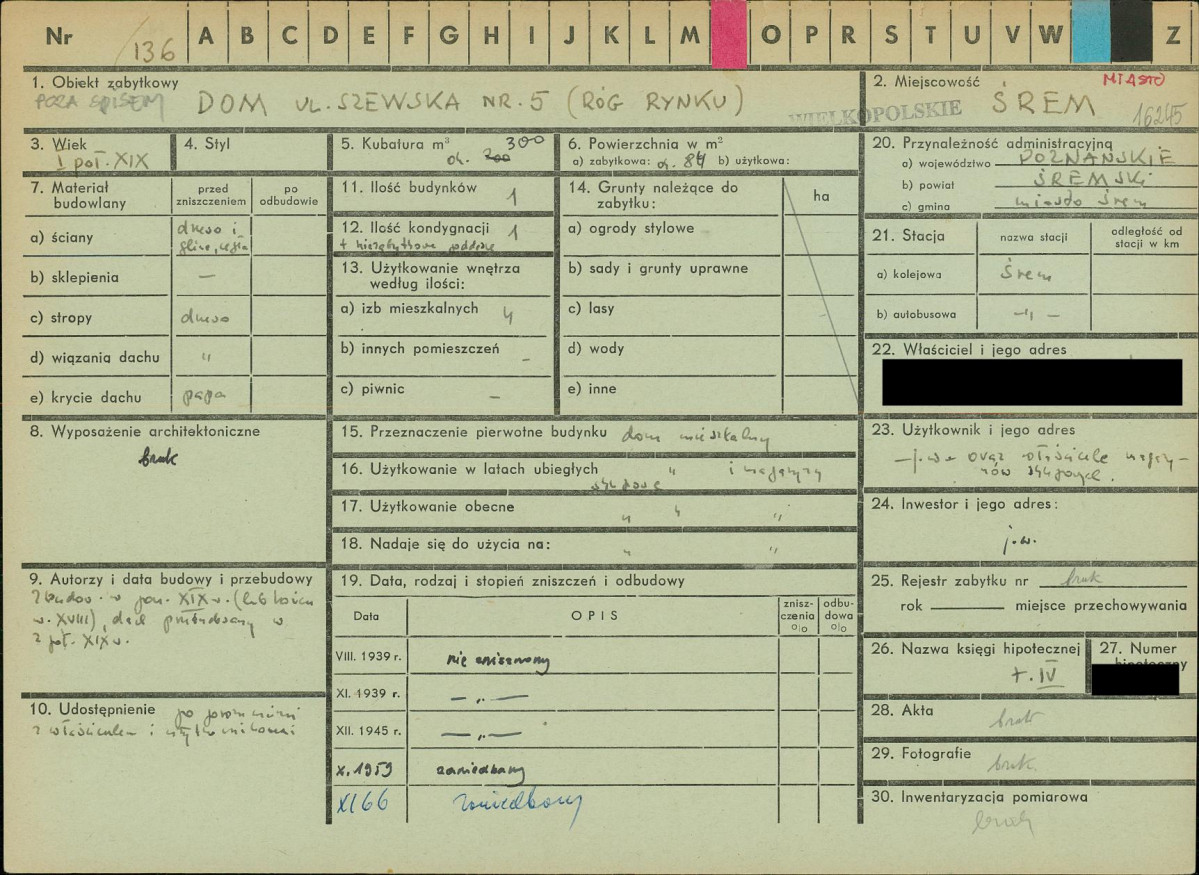 Nr 136 A B C D E F G H I J K L M O P R S T U V W Z
1. Obiekt zabytkowy
POZA SPISEM DOM UL. SZEWSKA NR. 5 (RÓG RYNKU)
2. Miejscowość MIASTO
ŚREM 16245
WIELKOPOLSKIE
3. Wiek
I poł. XIX
4. Styl
5. Kubatura m³ 300
ok. 200
6. Powierzchnia w m²
a) zabytkowa: ok. 84 b) użytkowa:
7. Materiał budowlany
przed zniszczeniem
po odbudowie
a) ściany drewno i glina, cegła
b) sklepienia —
c) stropy drewno
d) wiązania dachu "
e) krycie dachu papa
8. Wyposażenie architektoniczne
brak
9. Autorzy i data budowy i przebudowy
Zbudow. w pocz. XIX w. (lub końcu
w. XVIII), dach przebudowany w
2 poł. XIX w.
10. Udostępnienie po porozumieniu
z właścicielem i użytkownikami
11. Ilość budynków 1
12. Ilość kondygnacji 1
+ niezabytkowe poddasze
13. Użytkowanie wnętrza
według ilości:
a) izb mieszkalnych 4
b) innych pomieszczeń -
c) piwnic -
14. Grunty należące do
zabytku:
ha
a) ogrody stylowe
b) sady i grunty uprawne
c) lasy
d) wody
e) inne
15. Przeznaczenie pierwotne budynku dom mieszkalny
16. Użytkowanie w latach ubiegłych " i magazyny
17. Użytkowanie obecne " " "
18. Nadaje się do użycia na: " "
19. Data, rodzaj i stopień zniszczeń i odbudowy
Data
OPIS
znisz-
czenia
%
odbu-
dowa
%
VIII. 1939 r. nie zniszczony
XI. 1939 r. — „ —
XII. 1945 r. — „ —
X. 1959 zaniedbany
XI 66 zaniedbany
20. Przynależność administracyjna
a) województwo POZNAŃSKIE
b) powiat ŚREMSKI
c) gmina miasto Śrem
21. Stacja
nazwa stacji
odległość od
stacji w km
a) kolejowa Śrem
b) autobusowa -"-
22. Właściciel i jego adres
23. Użytkownik i jego adres
—j.w— oraz
24. Inwestor i jego adres:
j.w.
25. Rejestr zabytku nr brak
rok miejsce przechowywania
26. Nazwa księgi hipotecznej
t. IV
27. Numer
hipoteczny
28. Akta
brak
29. Fotografie
brak
30. Inwentaryzacja pomiarowa
brak